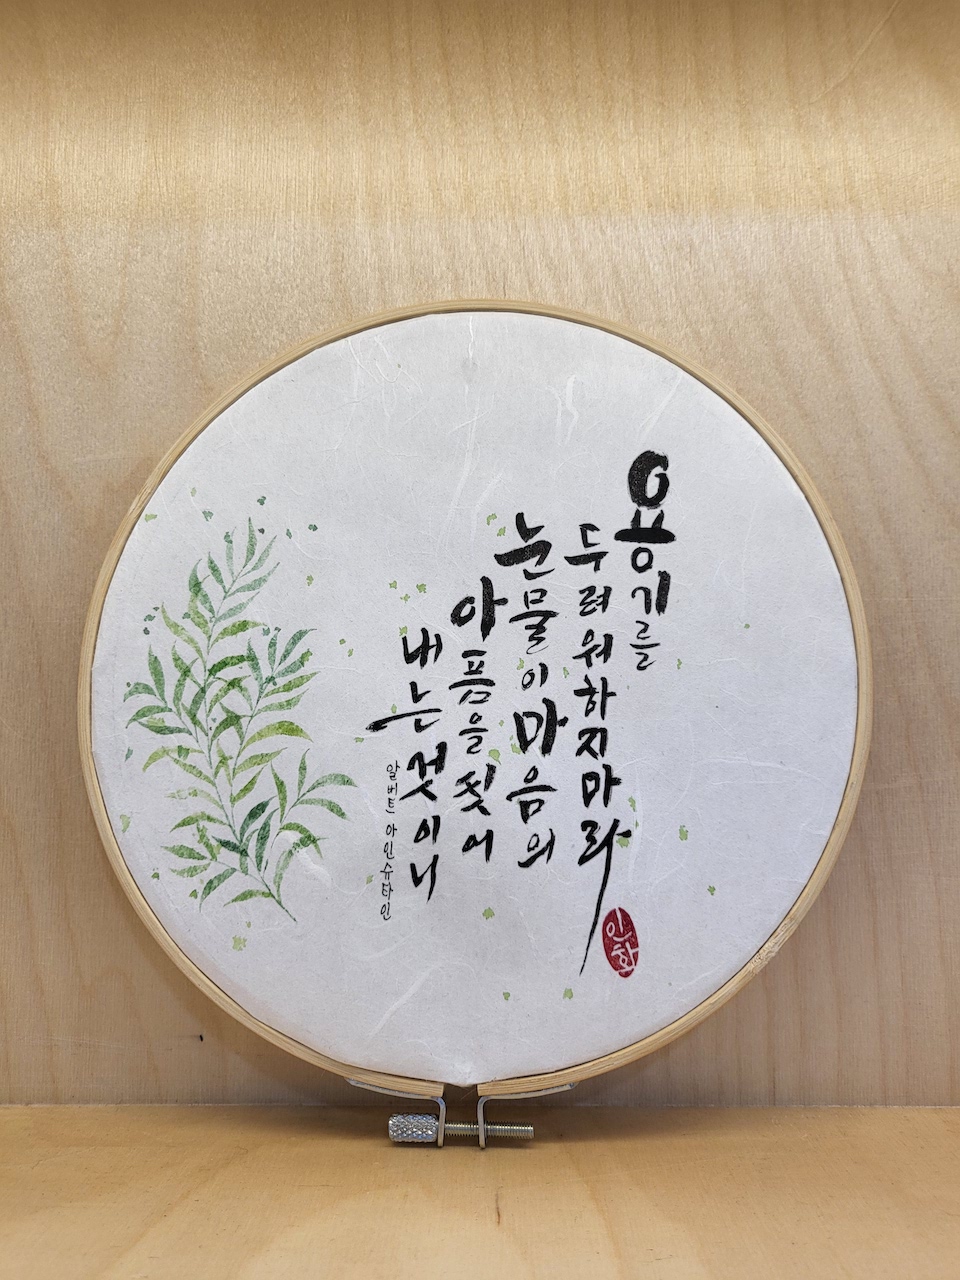 용기를
두려워하지마라
눈물이마음의
아픔을 씻어
내는것이니
알버트 아인슈타인
인화